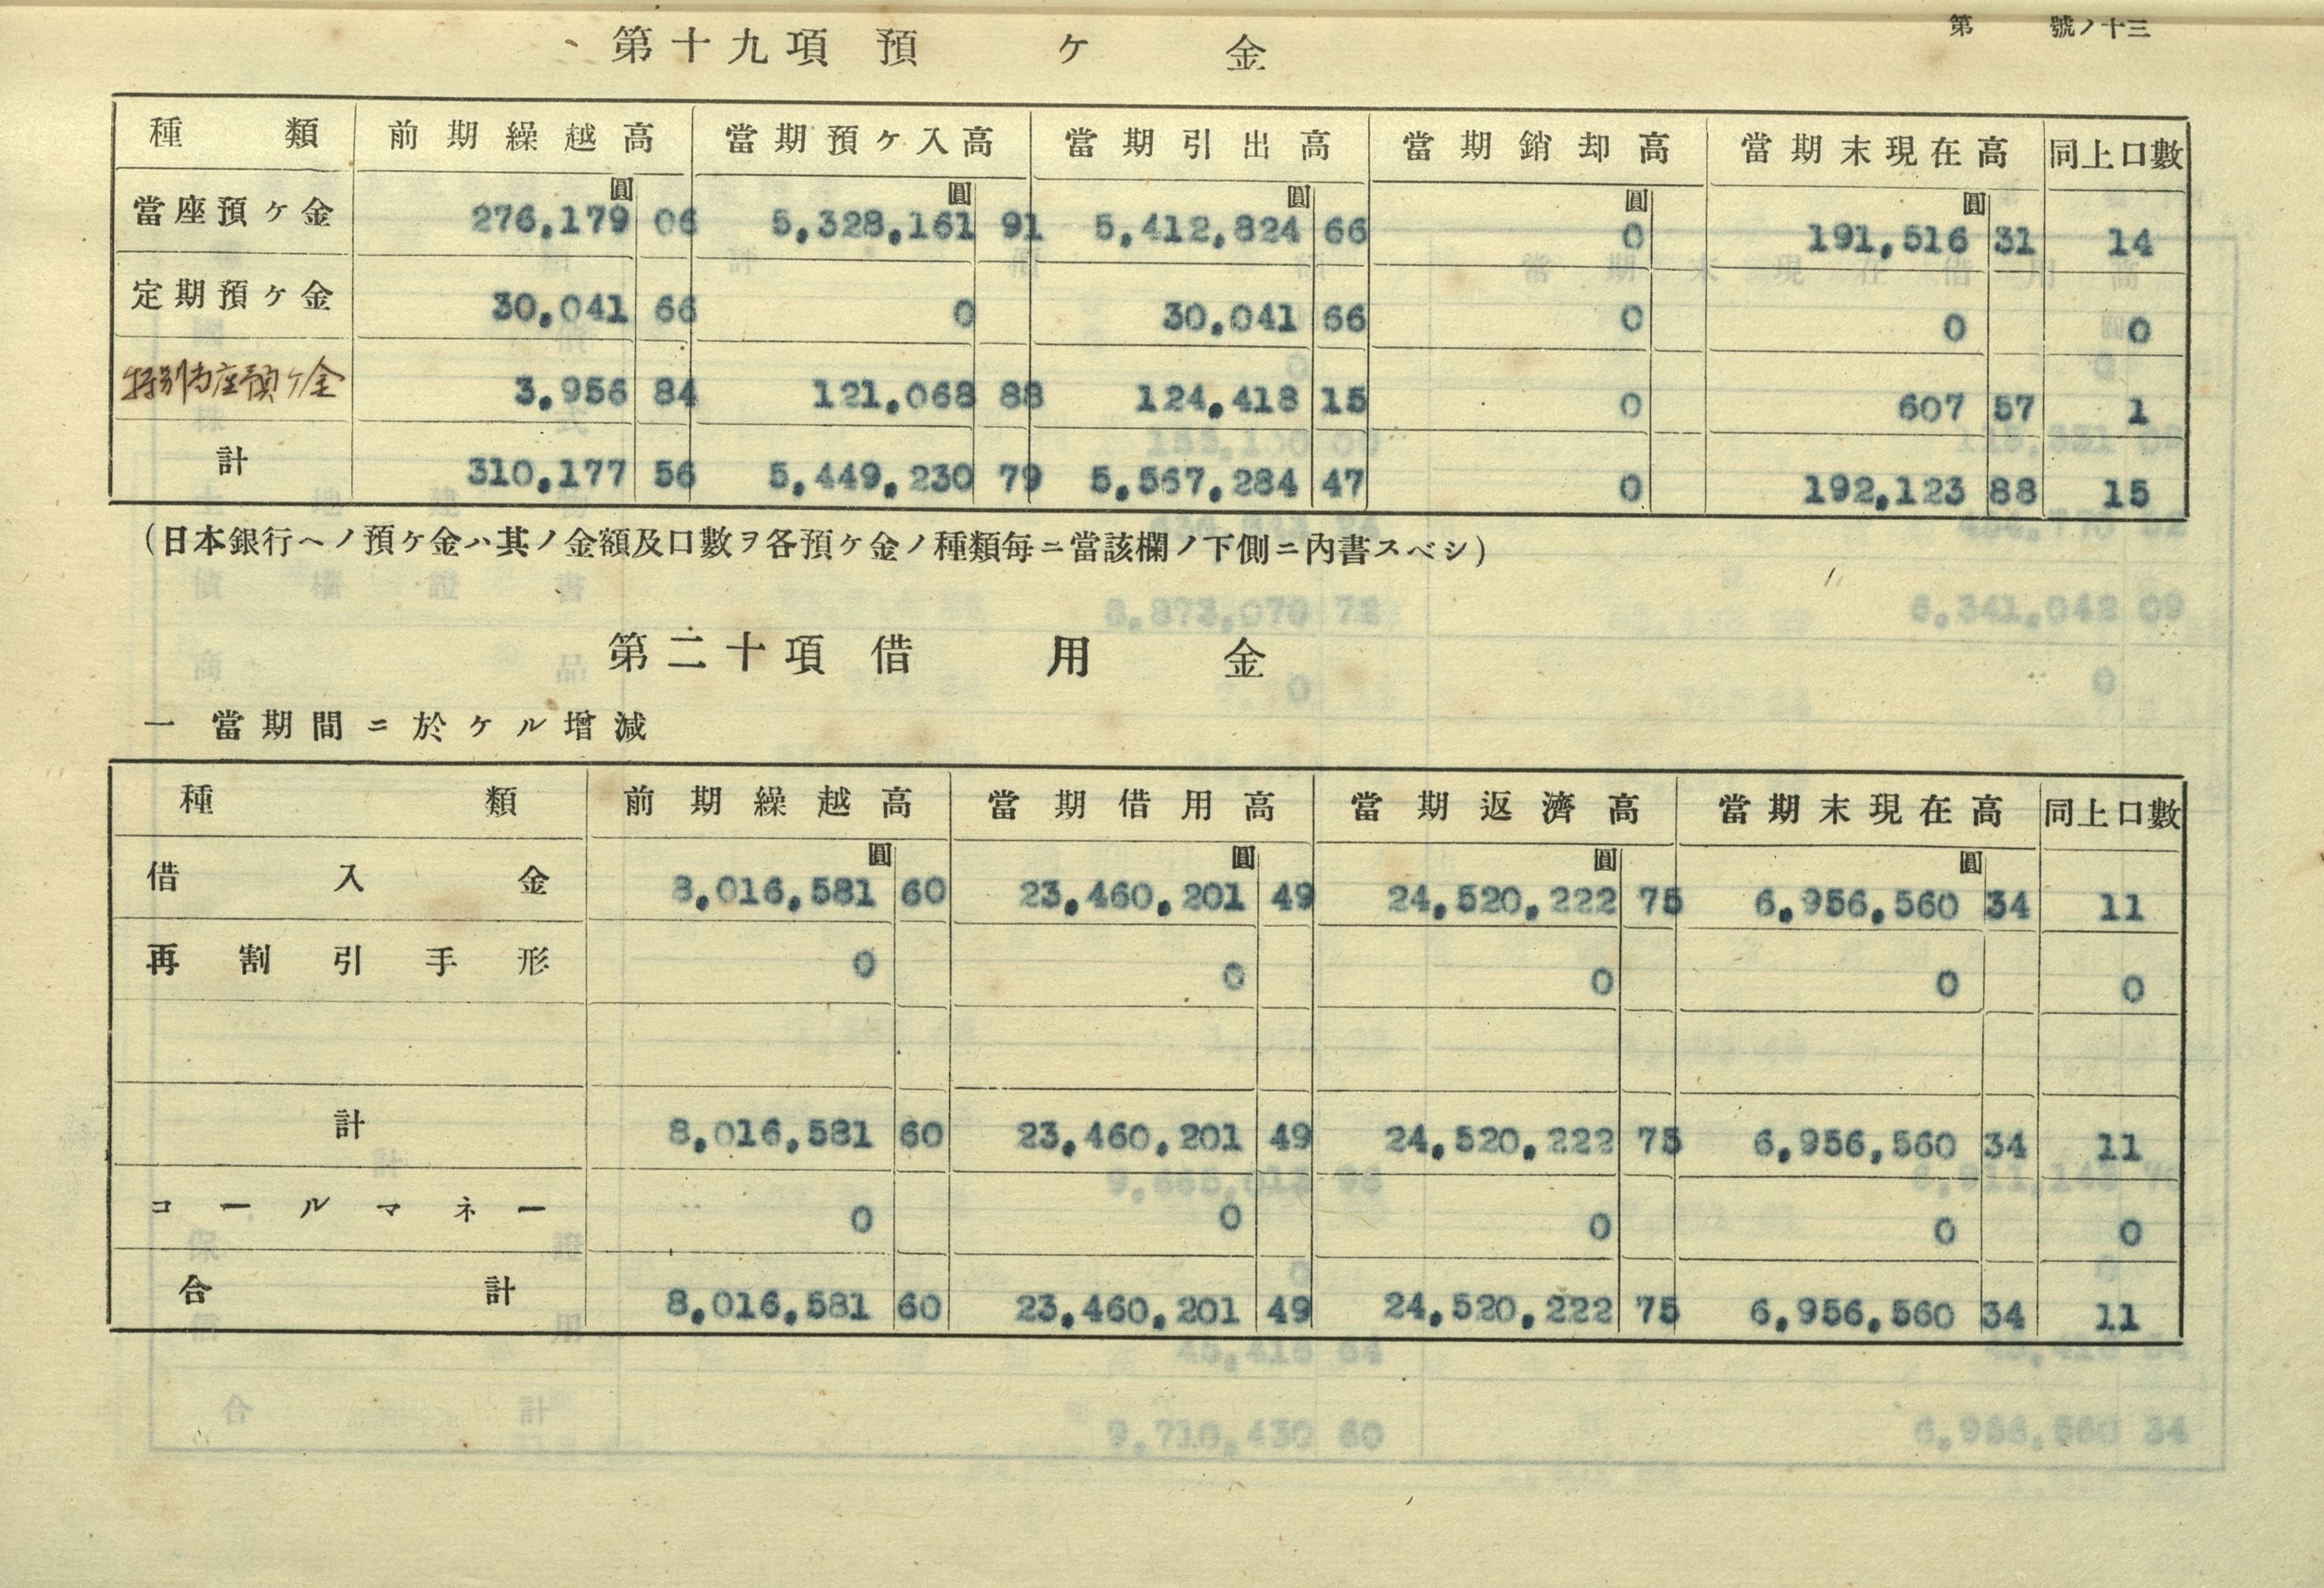 第 號ノ十三
第十九項 預ケ金
種類 前期繰越高 當期預ケ入高 當期引出高 當期銷却高 當期末現在高 同上口數
圓 圓 圓 圓 圓
當座預ケ金 276,179 06 5,328,161 91 5,412,824 66 0 191,516 31 14
定期預ケ金 30,041 66 0 30,041 66 0 0 0
特別当座預ケ金 3,956 84 121,068 88 124,418 15 0 607 57 1
計 310,177 56 5,449,230 79 5,567,284 47 0 192,123 88 15
(日本銀行ヘノ預ケ金ハ其ノ金額及口數ヲ各預ケ金ノ種類每ニ當該欄ノ下側ニ內書スベシ)
第二十項 借用金
一 當期間ニ於ケル增減
種類 前期繰越高 當期借用高 當期返濟高 當期末現在高 同上口數
圓 圓 圓 圓
借入金 8,016,581 60 23,460,201 49 24,520,222 75 6,956,560 34 11
再割引手形 0 0 0 0 0
計 8,016,581 60 23,460,201 49 24,520,222 75 6,956,560 34 11
コールマネー 0 0 0 0 0
合計 8,016,581 60 23,460,201 49 24,520,222 75 6,956,560 34 11